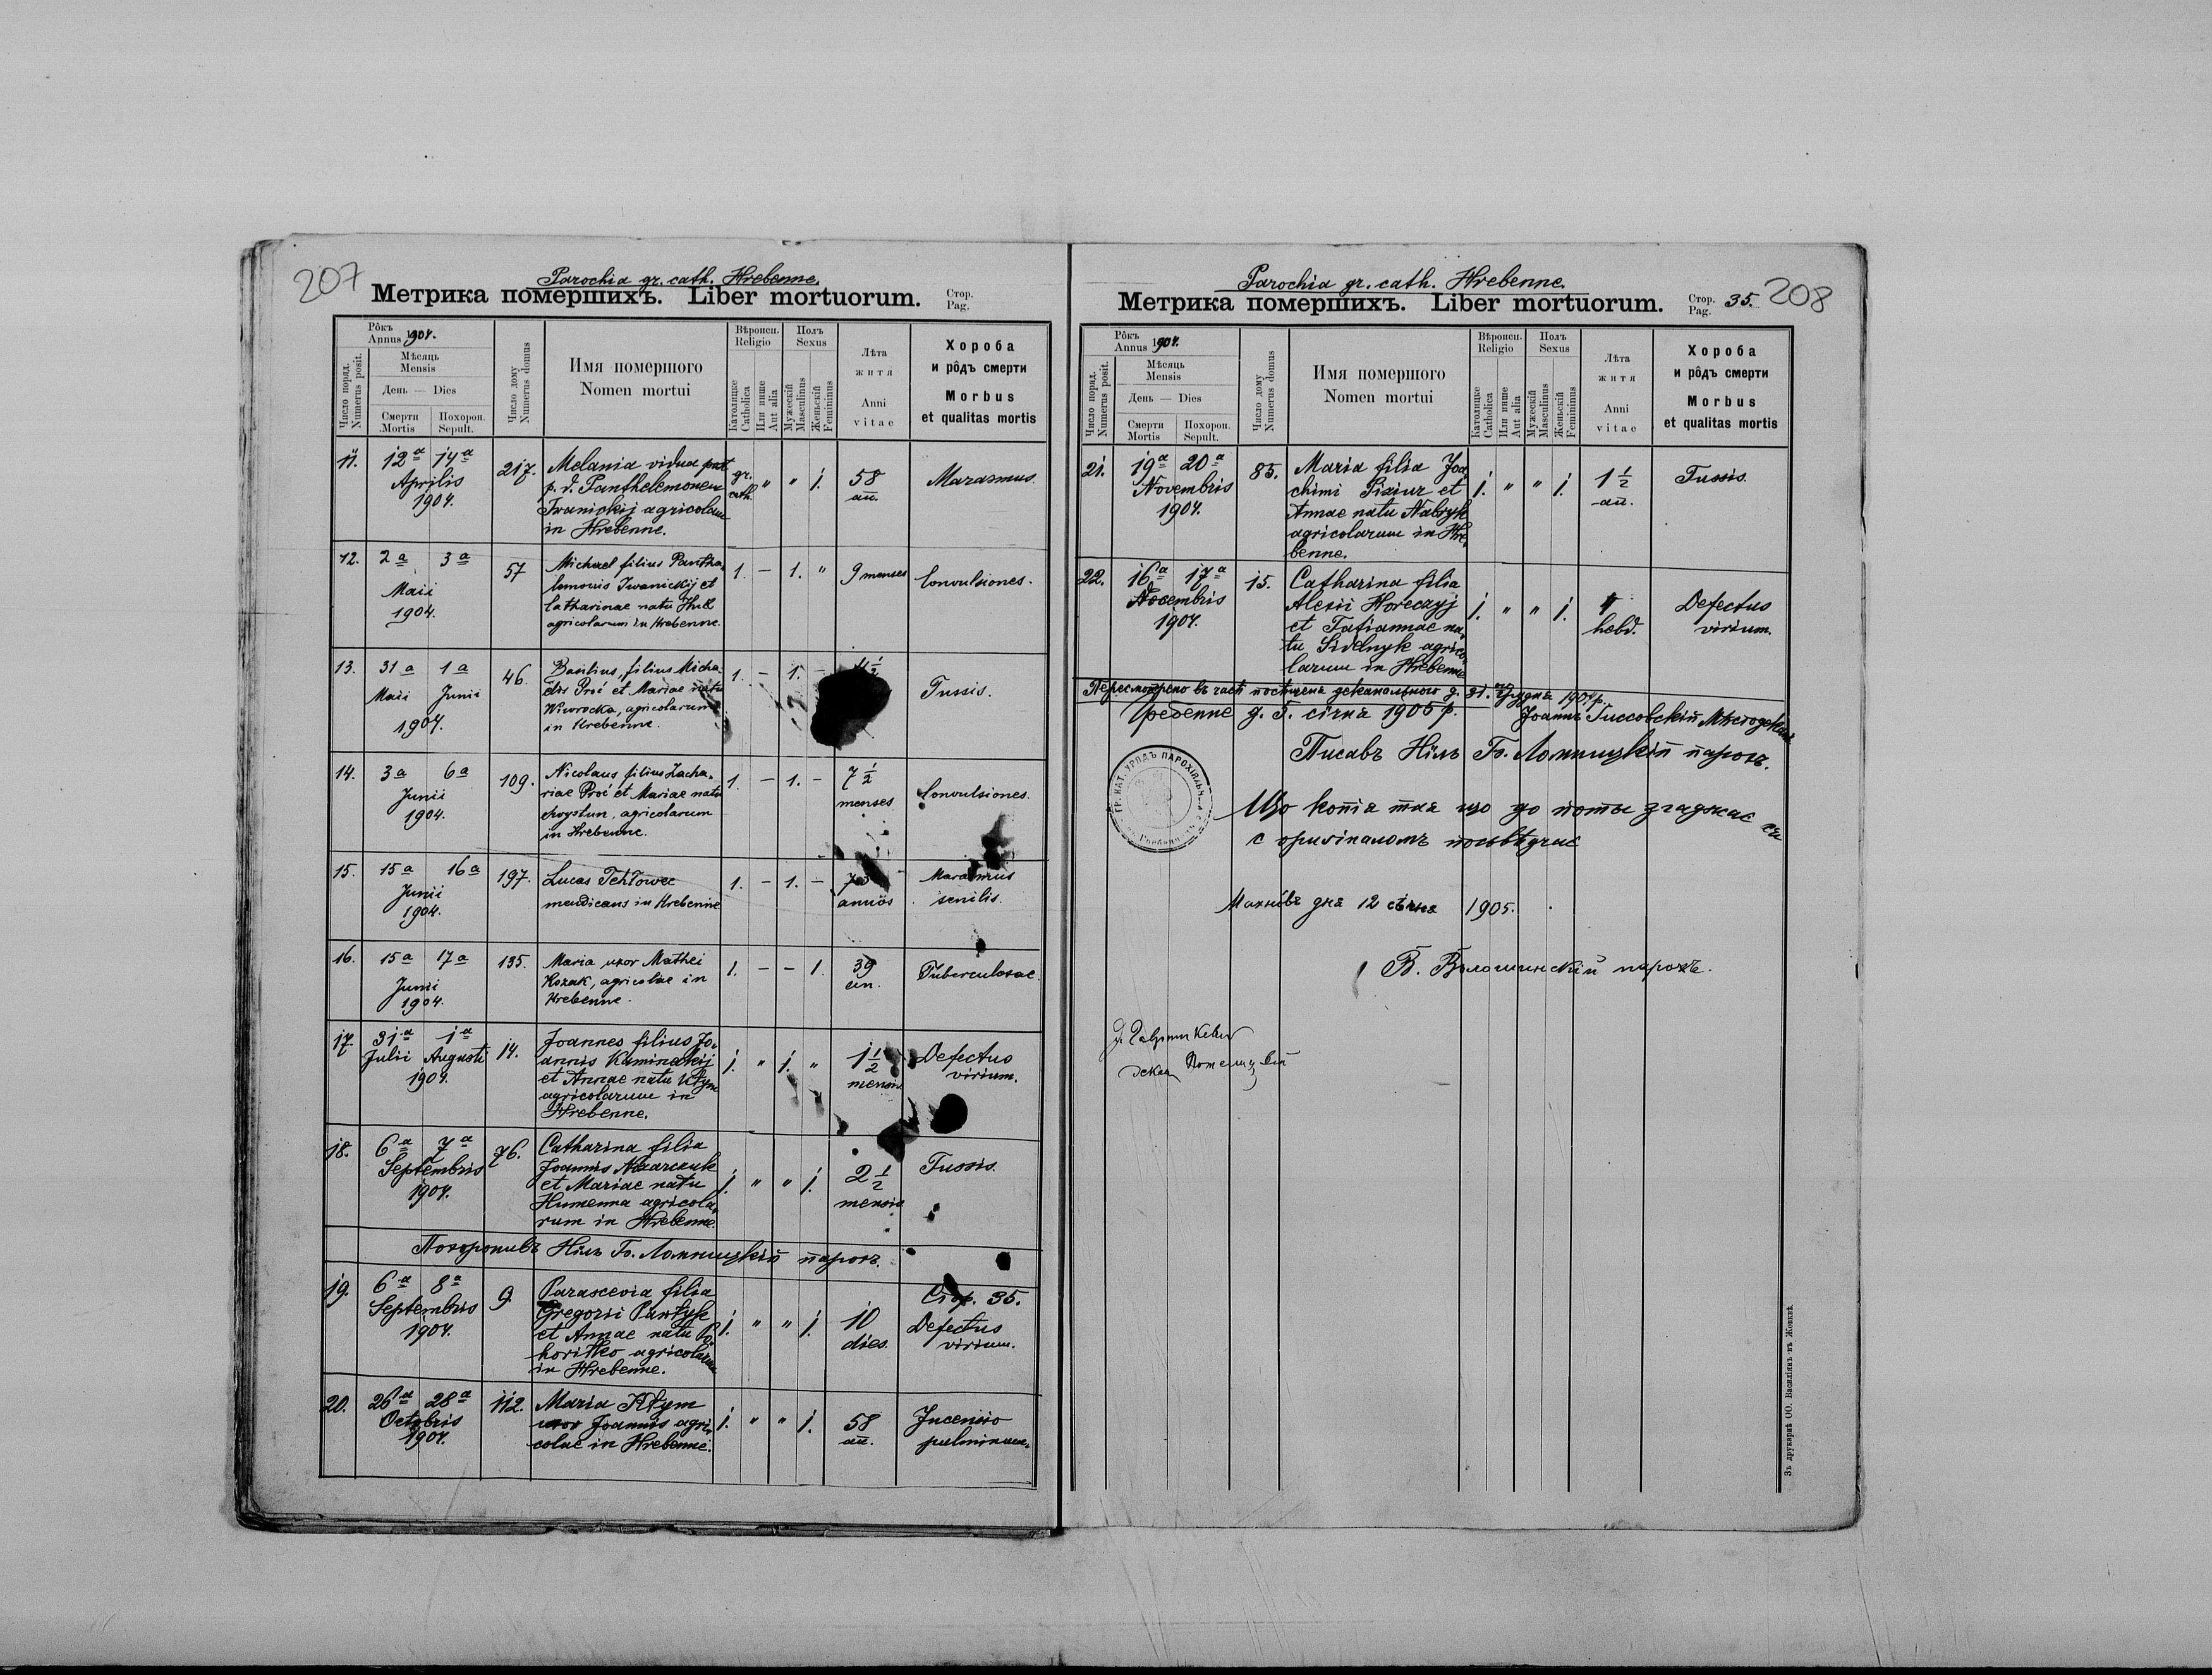 207
Parochia gr. cath. Hrebenne.
Метрика помершихъ. Liber mortuorum.
Стор.
Pag.
Рôкъ
Annus 1904.
Число поряд.
Numerus posit.
Мѣсяць
Mensis
День — Dies
Смерти
Mortis
Похорон.
Sepult.
Число дому
Numerus domus
Имя помершого
Nomen mortui
Вѣроисп.
Religio
Католицке
Catholica
Или инше
Aut alia
Полъ
Sexus
Мужескій
Masculinus
Женьскій
Femininus
Лѣта
житя
Anni
vitae
Хороба
и рôдъ смерти
Morbus
et qualitas mortis
11. 12a 14a 217. Melania vidua post gr. " " 1. 58 Marasmus.
Aprilis p. d. Panthelemonem cath. an.
1904. Iwanickij agricolam
in Hrebenne.
12. 2a 3a 57 Michael filius Pantha- 1. — 1. " 9 menses Convulsiones.
Maii lemonis Iwanickij et
1904. Catharinae natu Huk
agricolarum in Hrebenne.
13. 31a 1a 46. Basilius, filius Micha- 1. — 1. — Tussis.
Maii Junii elis Proć et Mariae natu
1904. agricolarum
in Hrebenne.
14. 3a 6a 109. Nicolaus filius Zacha- 1. — 1. — 7 1/2 Convulsiones.
Junii riae Proć et Mariae natu menses
1904. agricolarum
in Hrebenne.
15. 15a 16a 197. Lucas 1. — 1. — Marasmus
Junii mendicans in Hrebenne annos senilis.
1904.
16. 15a 17a 135. Maria uxor Mathei 1. — — 1. 39 Tuberculosae.
Junii Kozak, agricolae in an.
1904. Hrebenne.
17. 31a 1a 14. Joannes filius Jo- 1. " 1. " 1 1/2 Defectus
Julii Augusti annis Kaminskij mensis virium.
1904. et Annae natu Ktym
agricolarum in
Hrebenne.
18. 6a 7a 76. Catharina filia 1. " " 1. 2 1/2 Tussis.
Septembris Joannis mensis
1904. et Mariae natu
Humenna agricola-
rum in Hrebenne.
Похоронивъ Нилъ Бо. Ломницкій парох.
19. 6a 8a 9. Parascevia filia 1. " " 1. 10 Стор. 35.
Septembris Gregorii dies. Defectus
1904. et Annae natu virium.
agricolarum
in Hrebenne.
20. 26a 28a 112. Maria Ktym 1. " " 1. 58 Incensio
Octobris uxor Joannis agri- an. pulminum.
1904. colae in Hrebenne.
208
Parochia gr. cath. Hrebenne.
Метрика помершихъ. Liber mortuorum.
Стор.
Pag. 35.
Рôкъ
Annus 1904.
Число поряд.
Numerus posit.
Мѣсяць
Mensis
День — Dies
Смерти
Mortis
Похорон.
Sepult.
Число дому
Numerus domus
Имя помершого
Nomen mortui
Вѣроисп.
Religio
Католицке
Catholica
Или инше
Aut alia
Полъ
Sexus
Мужескій
Masculinus
Женьскій
Femininus
Лѣта
житя
Anni
vitae
Хороба
и рôдъ смерти
Morbus
et qualitas mortis
21. 19a 20a 85. Maria filia Joa- 1. " " 1. 1 1/2 Tussis.
Novembris chimi et an.
1904. Annae natu Nabryk
agricolarum in Hre-
benne.
22. 16a 17a 15. Catharina filia 1. " " 1. Defectus
1904. Alexii Horeczyj hebd. virium.
et Tatiannae na-
tu Sidelnyk agrico-
larum in Hrebenne
Пересмотрено въ часѣ посѣщеня деканального д. 21. грудня 1904 р.
Гребенне д. 5. січня 1905 р.
Писавъ Нілъ Бо. Ломницкій парох.
ГР. КАТ. УРЯДЪ ПАРОХІЯЛЬН.
Що копія тая що до ноты згаджає ся
с оригіналомъ посвѣдчає
дня 12 січня 1905.
В. Волошинскій парохъ.
декан
Зъ друкарнѣ ОО. Василіянъ въ Жовквѣ.